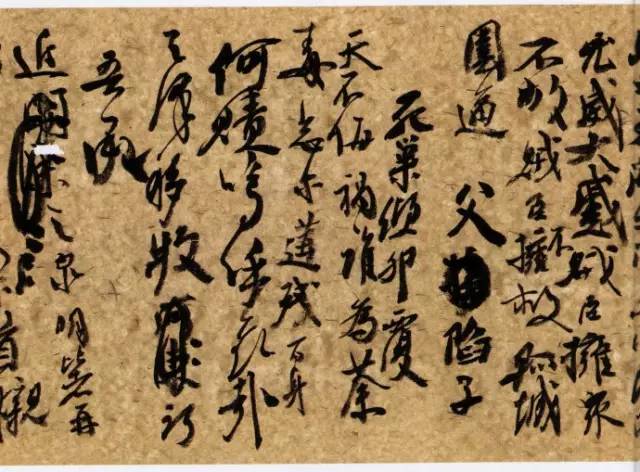 凶威大蹙賊臣擁衆
不救賊臣不擁救孤城
圍逼父陷子
死巢傾卵覆
天不悔禍誰為荼
毒念尔遘殘百身
何贖嗚呼哀哉
天澤移牧
吾承
近
泉明比者再
首櫬